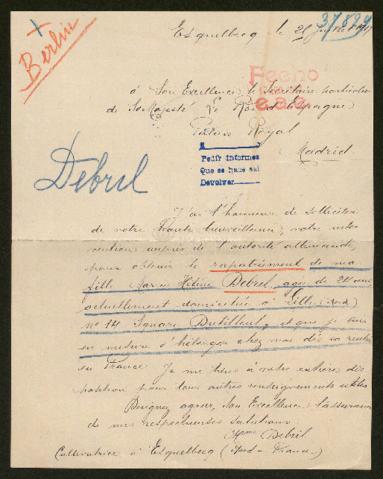 37,894
Berlin
Esquelbecq le 25
à Son Excellence le Secrétaire particulier
de Sa Majesté Le Roi d'Espagne
Palais Royal
Madrid
Fecho
Pedir informes
Que se hace así
Devolver
Debril
J'ai l'honneur de solliciter
de votre Haute bienveillance, votre inter
vention auprès de l'autorité allemande,
pour obtenir le rapatriement de ma
fille Marie Hélène Debril, agée de 21 ans
actuellement domiciliée à Lille, (Nord)
nº 14 Square Dutilleul, et que je suis
en mesure d'héberger chez moi dès sa rentrée
en France. Je me tiens à votre entière dis
position pour tous autres renseignements utiles
Daignez agréer, Son Excellence, l'assurance
de mes respectueuses salutations.
Debril
Cultivatrice à Esquelbecq (Nord - France)